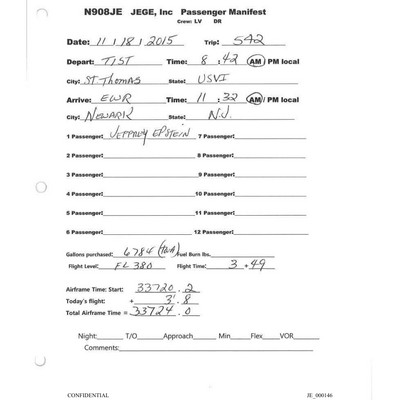 N908JE JEGE, Inc Passenger Manifest
Crew: LV DR
Date: 11 / 18 / 2015 Trip: 542
Depart: TIST Time: 8 : 42 AM / PM local
City: ST Thomas State: USVI
Arrive: EWR Time: 11 : 32 AM / PM local
City: NEWARK State: N.J.
1 Passenger: JEFFREY EPSTEIN 7 Passenger:
2 Passenger: 8 Passenger:
3 Passenger: 9 Passenger:
4 Passenger: 10 Passenger:
5 Passenger: 11 Passenger:
6 Passenger: 12 Passenger:
Gallons purchased: 6784 Fuel Burn lbs.
Flight Level: FL 380 Flight Time: 3 + 49
Airframe Time: Start: 33720 . 2
Today's flight: + 3 . 8
Total Airframe Time = 33724 . 0
Night: T/O Approach Min Flex VOR
Comments:
CONFIDENTIAL JE_000146